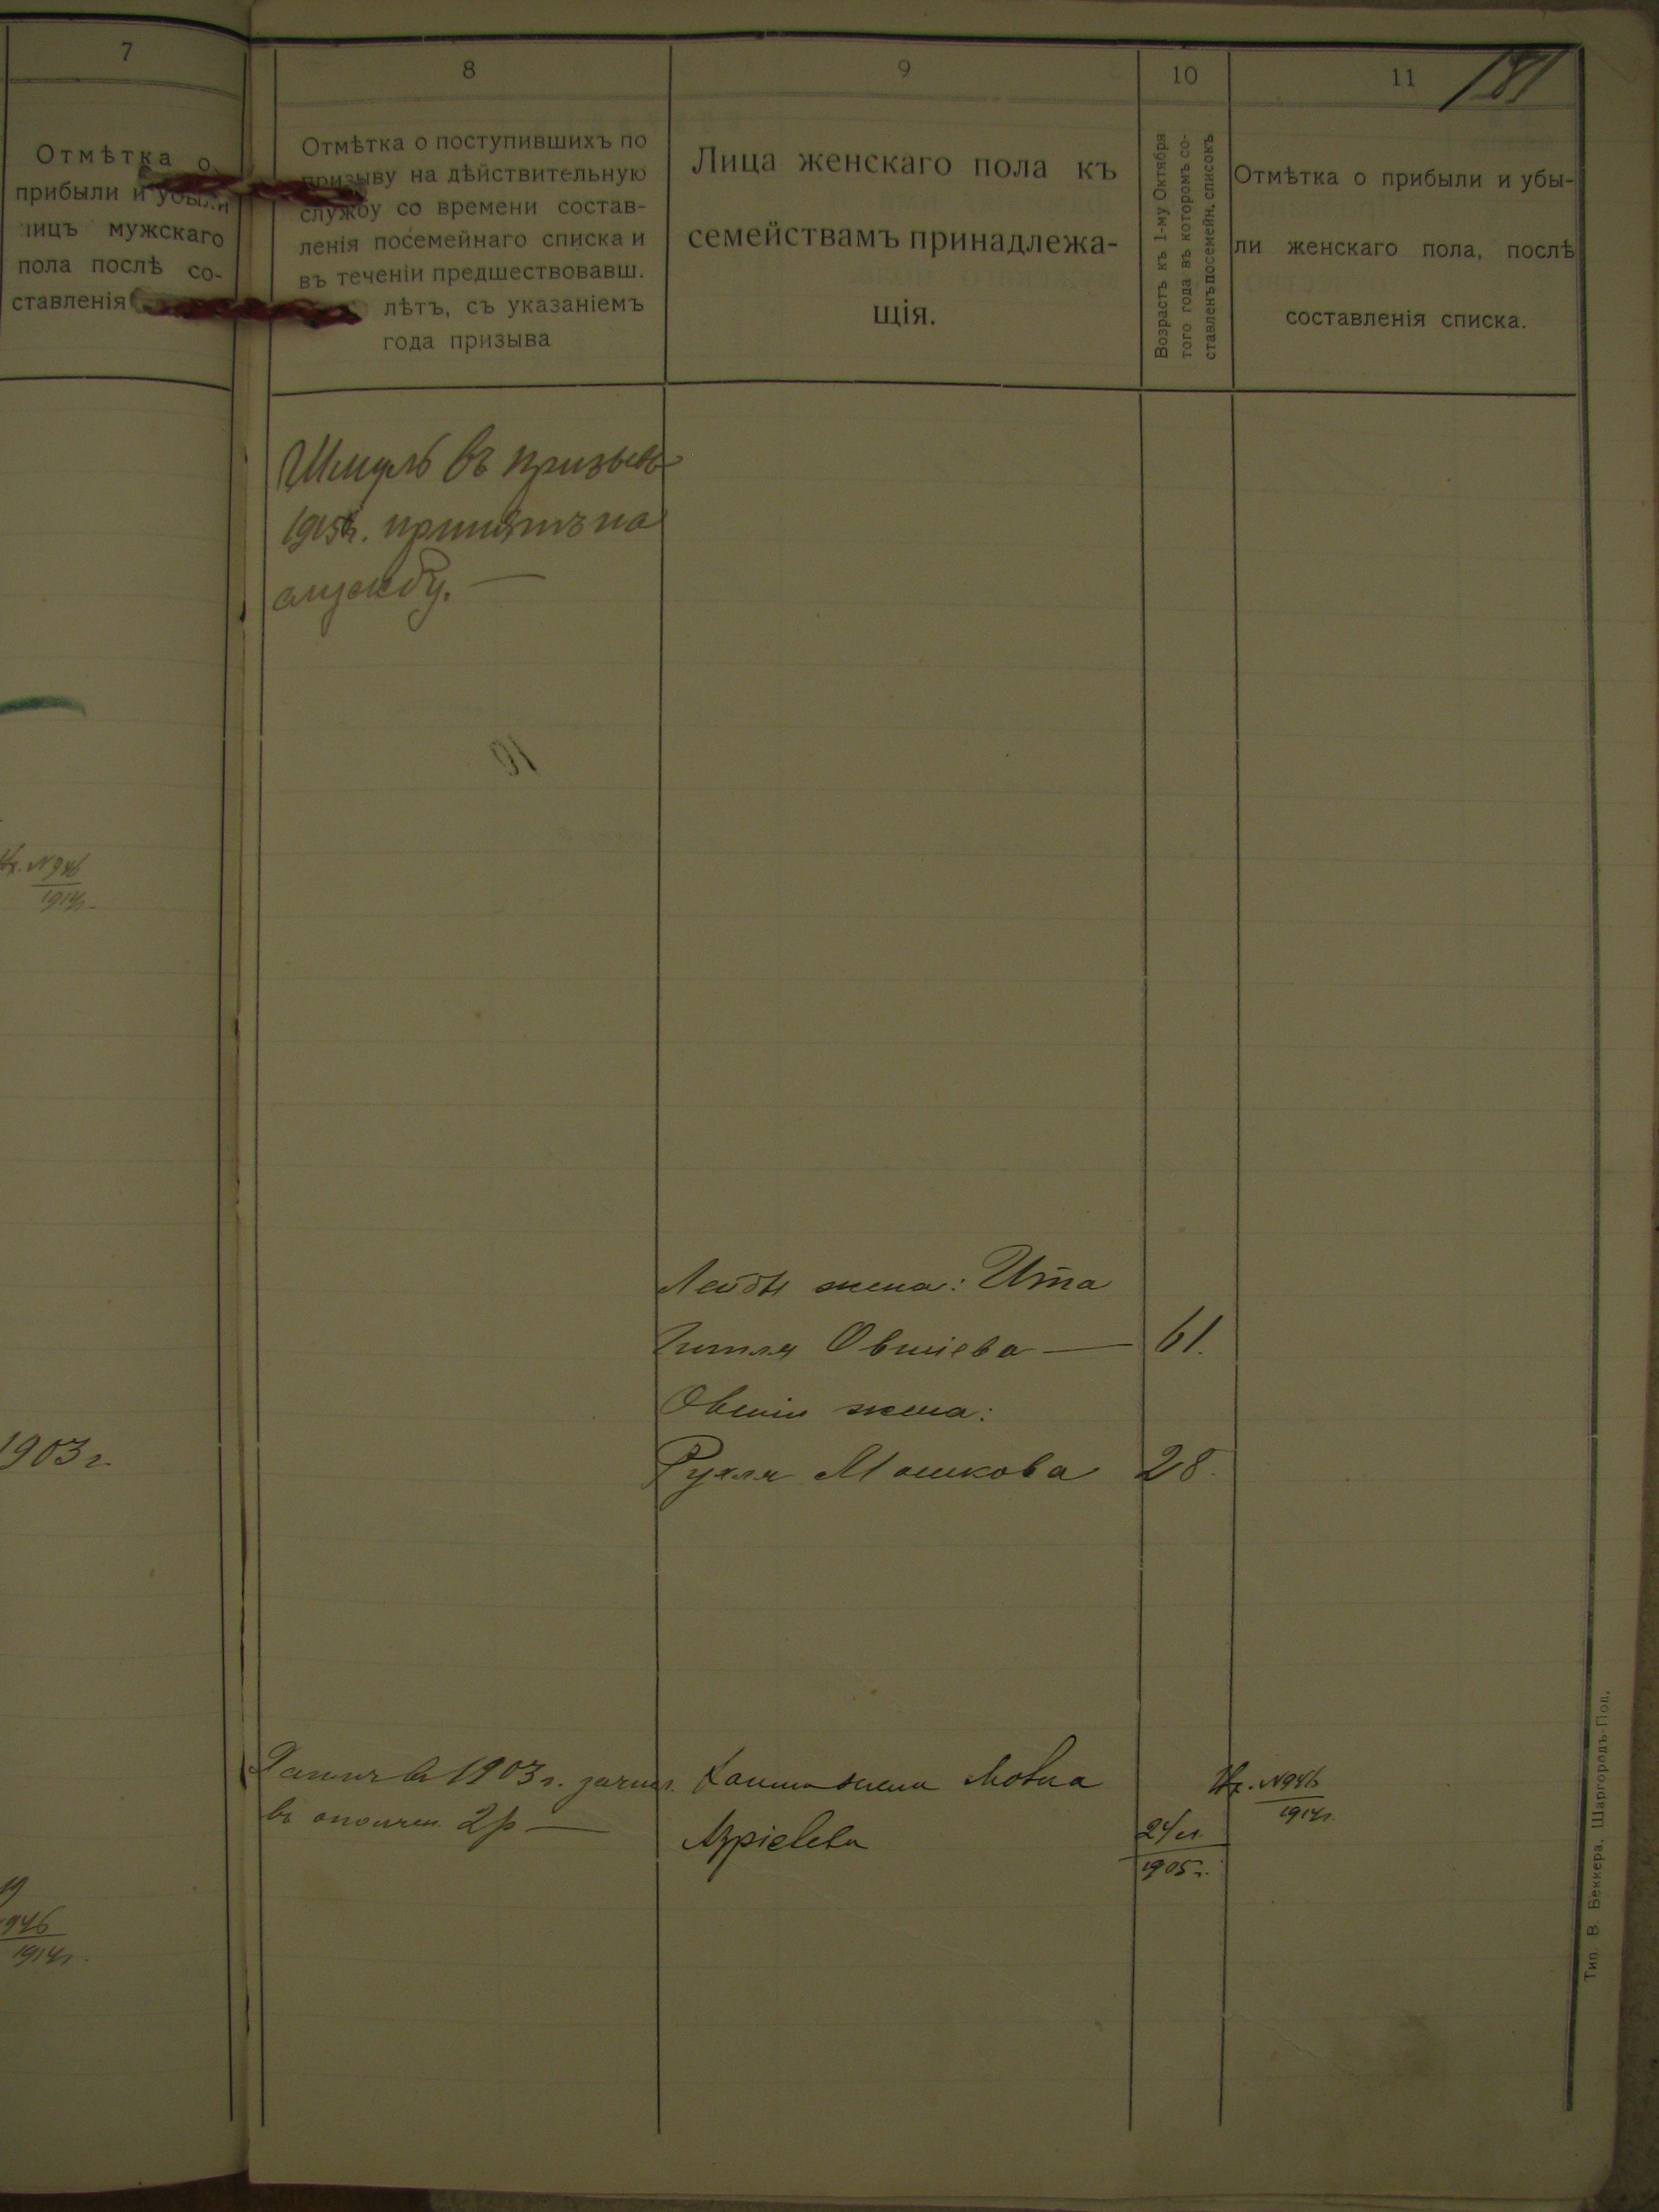 7
Отмѣтка о
прибыли и убыли
лицъ мужскаго
пола послѣ со-
ставленія
№ 946
1914г.
1903 г.
946
1914г.
8
Отмѣтка о поступившихъ по
призыву на дѣйствительную
службу со времени состав-
ленія посемейнаго списка и
въ теченіи предшествовавш.
лѣтъ, съ указаніемъ
года призыва
Шмуль въ призывъ
1915г. принятъ на
службу. —
въ 1903 г. зачисл.
въ ополчен. 2р —
9
Лица женскаго пола къ
семействамъ принадлежа-
щія.
Лейбы жена: Ита
Гитля Овшіева —
Овшія жена:
Рухля Мошкова
жена
Азріелева
10
Возрастъ къ 1-му Октября
того года въ которомъ со-
ставленъ посемейн. списокъ
61.
28.
24
1905г.
11
181
Отмѣтка о прибыли и убы-
ли женскаго пола, послѣ
составленія списка.
№ 946
1914г.
Тип. В. Веккера, Шаргородъ-Под.